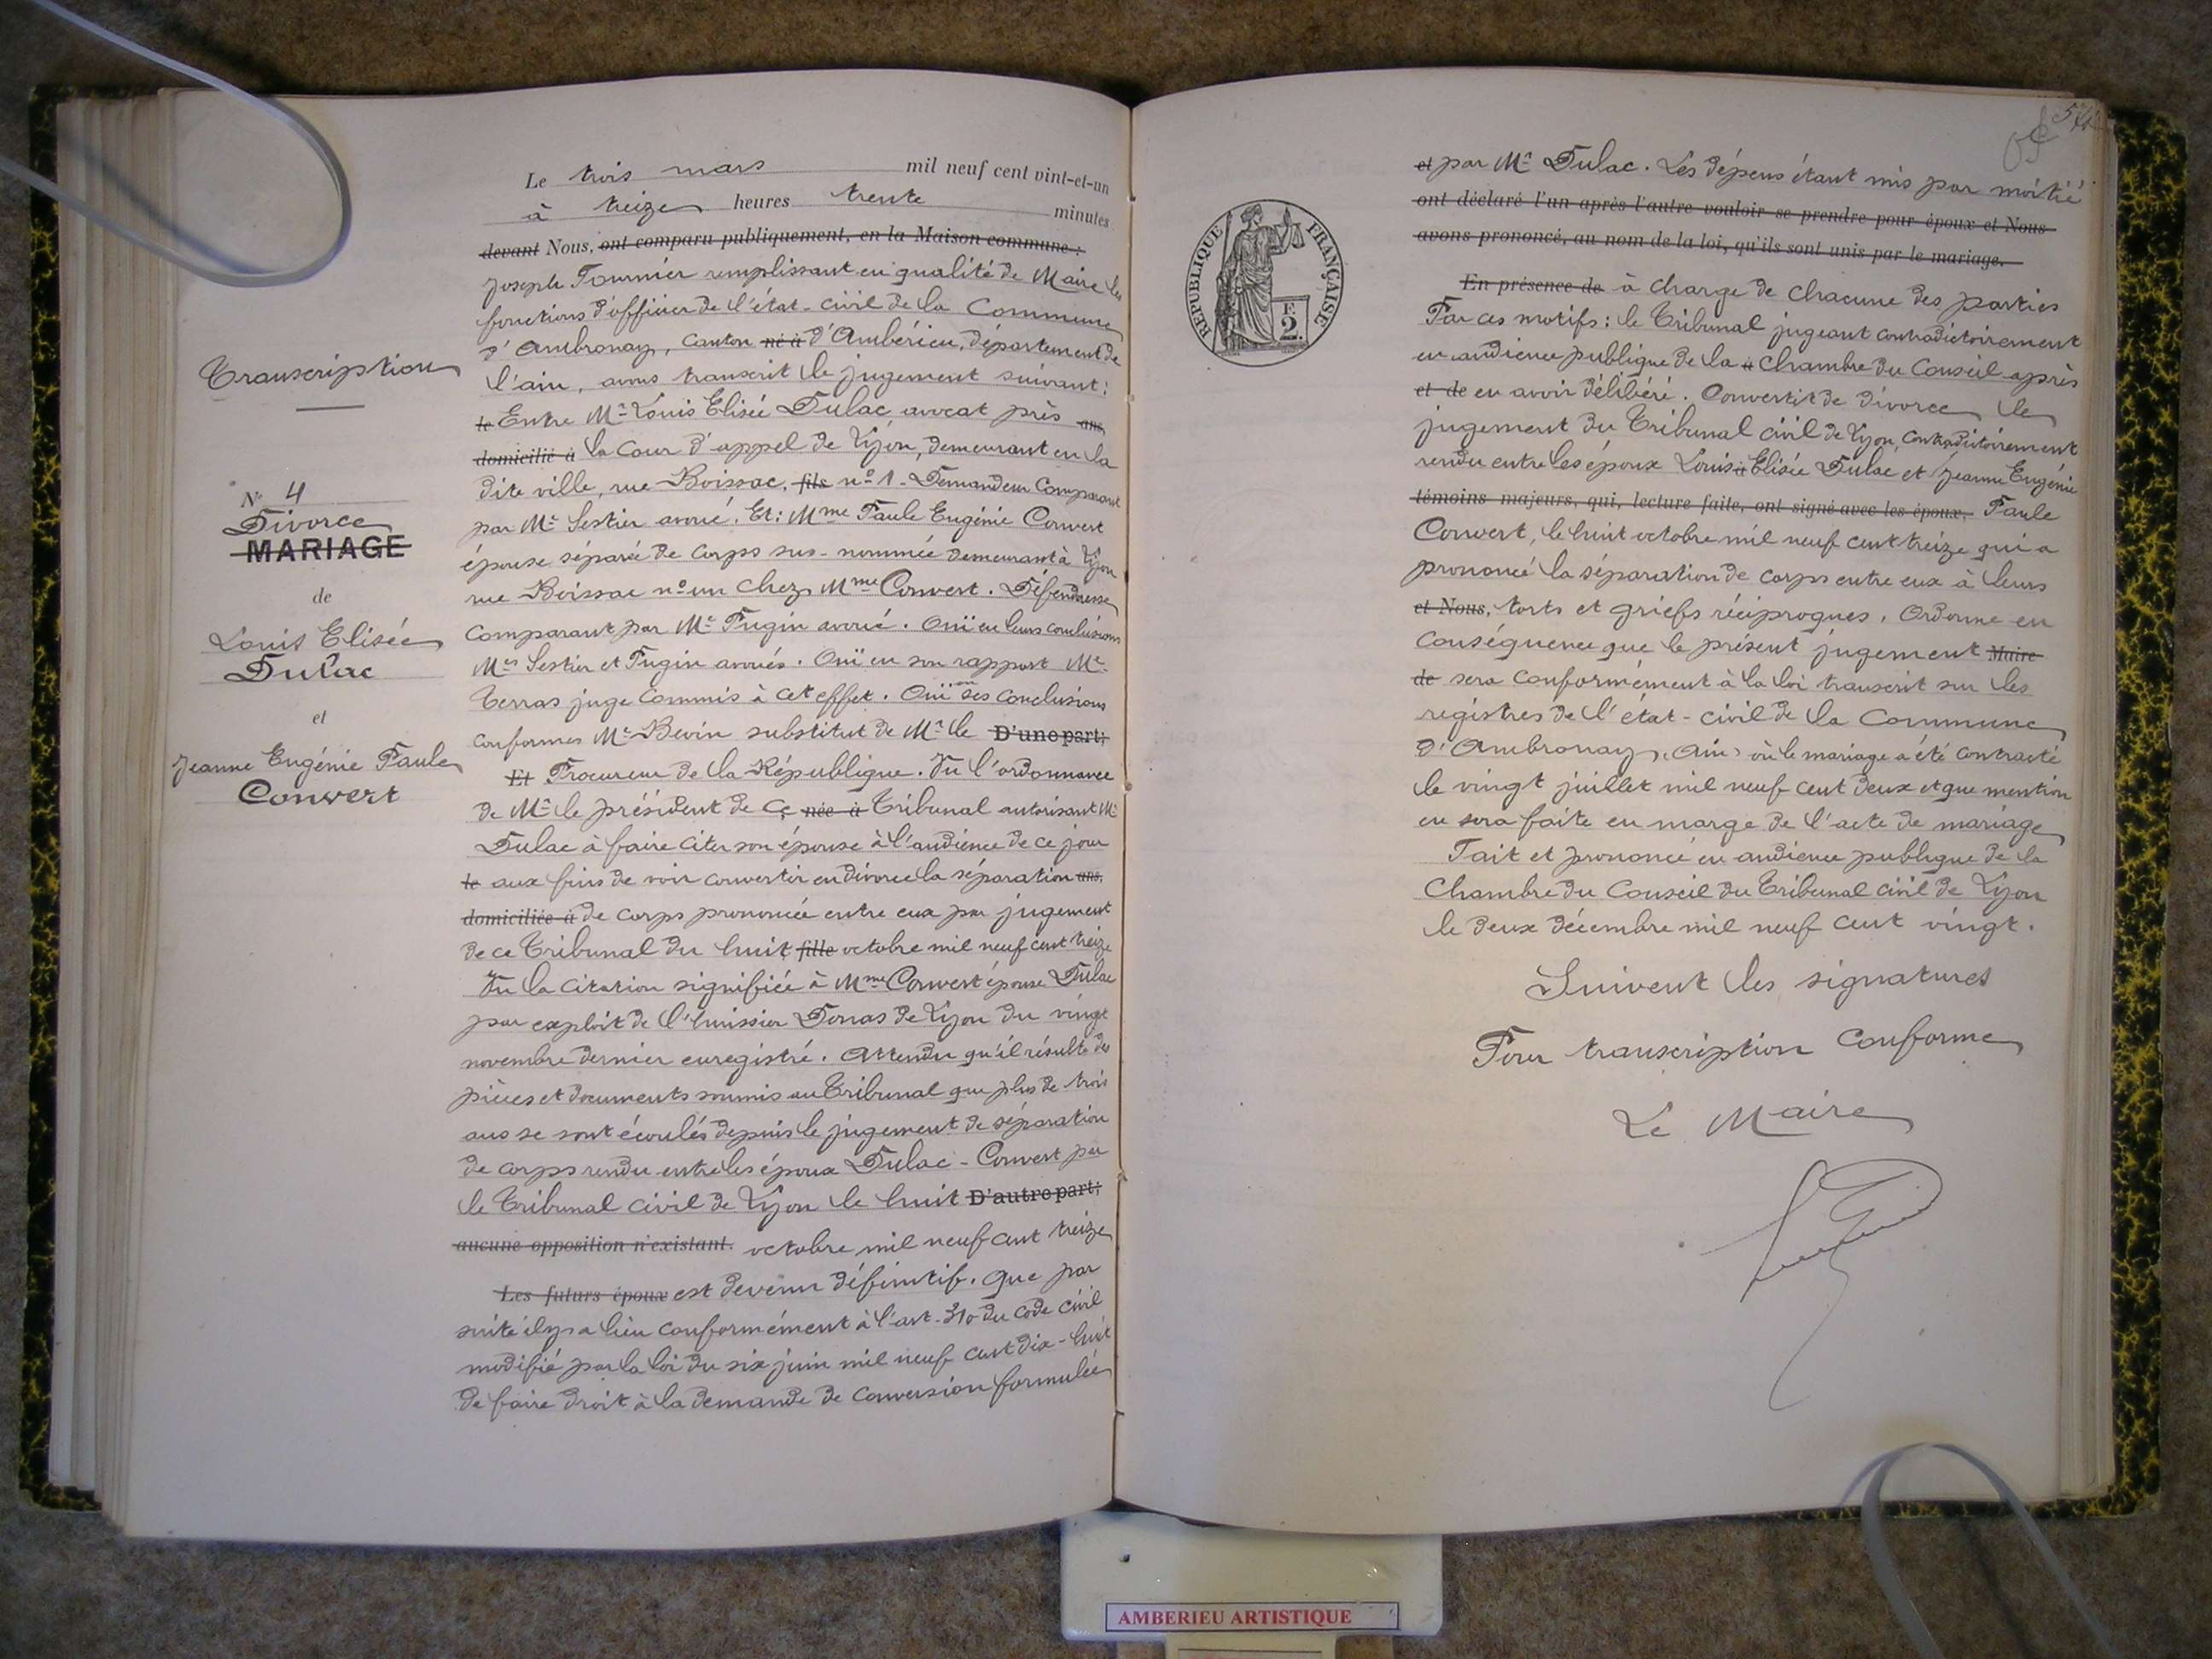 Transcription
N° 4
Divorce
MARIAGE
de
Louis Elisée
Dulac
et
Jeanne Eugénie Paule
Convert
Le trois mars mil neuf cent vint-et-un
à treize heures trente minutes
devant Nous, ont comparu publiquement, en la Maison commune :
Joseph Tournier remplissant en qualité de Maire les
fonctions d'officier de l'état-civil de la Commune
d'Ambronay, canton né à d'Ambérieu, département de
l'ain, avons transcrit le jugement suivant :
le Entre Mr Louis Elisée Dulac avocat près ans,
domicilié à la Cour d'appel de Lyon, demeurant en la
dite ville, rue Boissac, fils n° 1. Demandeur Comparant
par Me Sestier avoué. Et : Mme Paule Eugénie Convert
épouse séparée de corps sus-nommée demeurant à Lyon
rue Boissac n° un chez Mme Convert. Défenderesse
Comparant par Me Pugin avoué. Ouï en leurs conclusions
Mes Sestier et Pugin avoués. Ouï en son rapport Mr
Terras juge commis à cet effet. Ouï en ses conclusions
conformes Mr Bevin substitut de Mr le D'une part;
Et Procureur de la République. Vu l'ordonnance
de Mr le président de ce née à Tribunal autorisant Mr
Dulac à faire citer son épouse à l'audience de ce jour
le aux fins de voir convertir en divorce la séparation ans,
domiciliée à de corps prononcée entre eux par jugement
de ce Tribunal du huit fille octobre mil neuf cent treize
Vu la citation signifiée à Mme Convert épouse Dulac
par exploit de l'huissier Donas de Lyon du vingt
novembre dernier enregistré. Attendu qu'il résulte des
pièces et documents soumis au Tribunal que plus de trois
ans se sont écoulés depuis le jugement de séparation
de corps rendu entre les époux Dulac - Convert par
le Tribunal civil de Lyon le huit D'autre part;
aucune opposition n'existant. octobre mil neuf cent treize
Les futurs époux est devenu définitif. Que par
suite il y a lieu conformément à l'art. 310 du code civil
modifié par la loi du six juin mil neuf cent dix-huit
de faire droit à la demande de conversion formulée
RÉPUBLIQUE FRANÇAISE
F.
2.
et par Mr Dulac. Les dépens étant mis par moitié
ont déclaré l'un après l'autre vouloir se prendre pour époux et Nous
avons prononcé, au nom de la loi, qu'ils sont unis par le mariage.
En présence de à charge de chacune des parties
Par ces motifs : le Tribunal jugeant contradictoirement
en audience publique de la à Chambre du Conseil après
et de en avoir délibéré. Convertit de divorce le
jugement du Tribunal civil de Lyon contradictoirement
rendu entre les époux Louis à Elisée Dulac et Jeanne Eugénie
témoins majeurs, qui, lecture faite, ont signé avec les époux, Paule
Convert, le huit octobre mil neuf cent treize qui a
prononcé la séparation de corps entre eux à leurs
et Nous, torts et griefs réciproques. Ordonne en
conséquence que le présent jugement Maire
de sera conformément à la loi transcrit sur les
registres de l'état-civil de la Commune
d'Ambronay, (Ain) où le mariage a été contracté
le vingt juillet mil neuf cent deux et que mention
en sera faite en marge de l'acte de mariage
Fait et prononcé en audience publique de la
Chambre du Conseil du Tribunal civil de Lyon
le deux décembre mil neuf cent vingt.
Suivent les signatures
Pour transcription conforme
Le Maire
AMBERIEU ARTISTIQUE